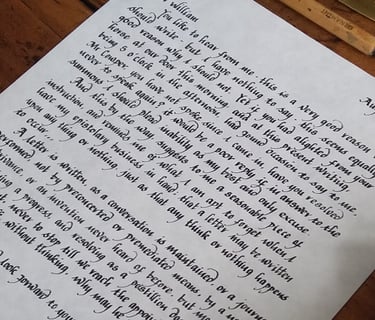 William
You like to hear from me: this is a very good reason
should write. but I have nothing to say: this seems equally
good reason why I should not. Yet if you had alighted from your
horse at our door this morning, and at this present writing
being 5 o'clock in the afternoon, had found occasion to say to me.
Mr Cowper, you have not spoke since I came in, have you resolved
never to speak again? it would be a poor reply, if in answer to the
summons I should plead inability as my best and only excuse.
And this by the way suggests to me a seasonable piece of
instruction and reminds me of what I am apt to forget when I
have my epistolary business in hand; that a letter may be written
upon any thing or nothing just as that any think or nothing happens
to occur.
A letter is written, as a conversation is maintained, or a journey
performed, not by preconcerted or premeditated means, by a
an invention never heard of before. but
progress, and resolving as a postillion does
never to stop till we reach the appoin
without thinking, why may he
look forward to you